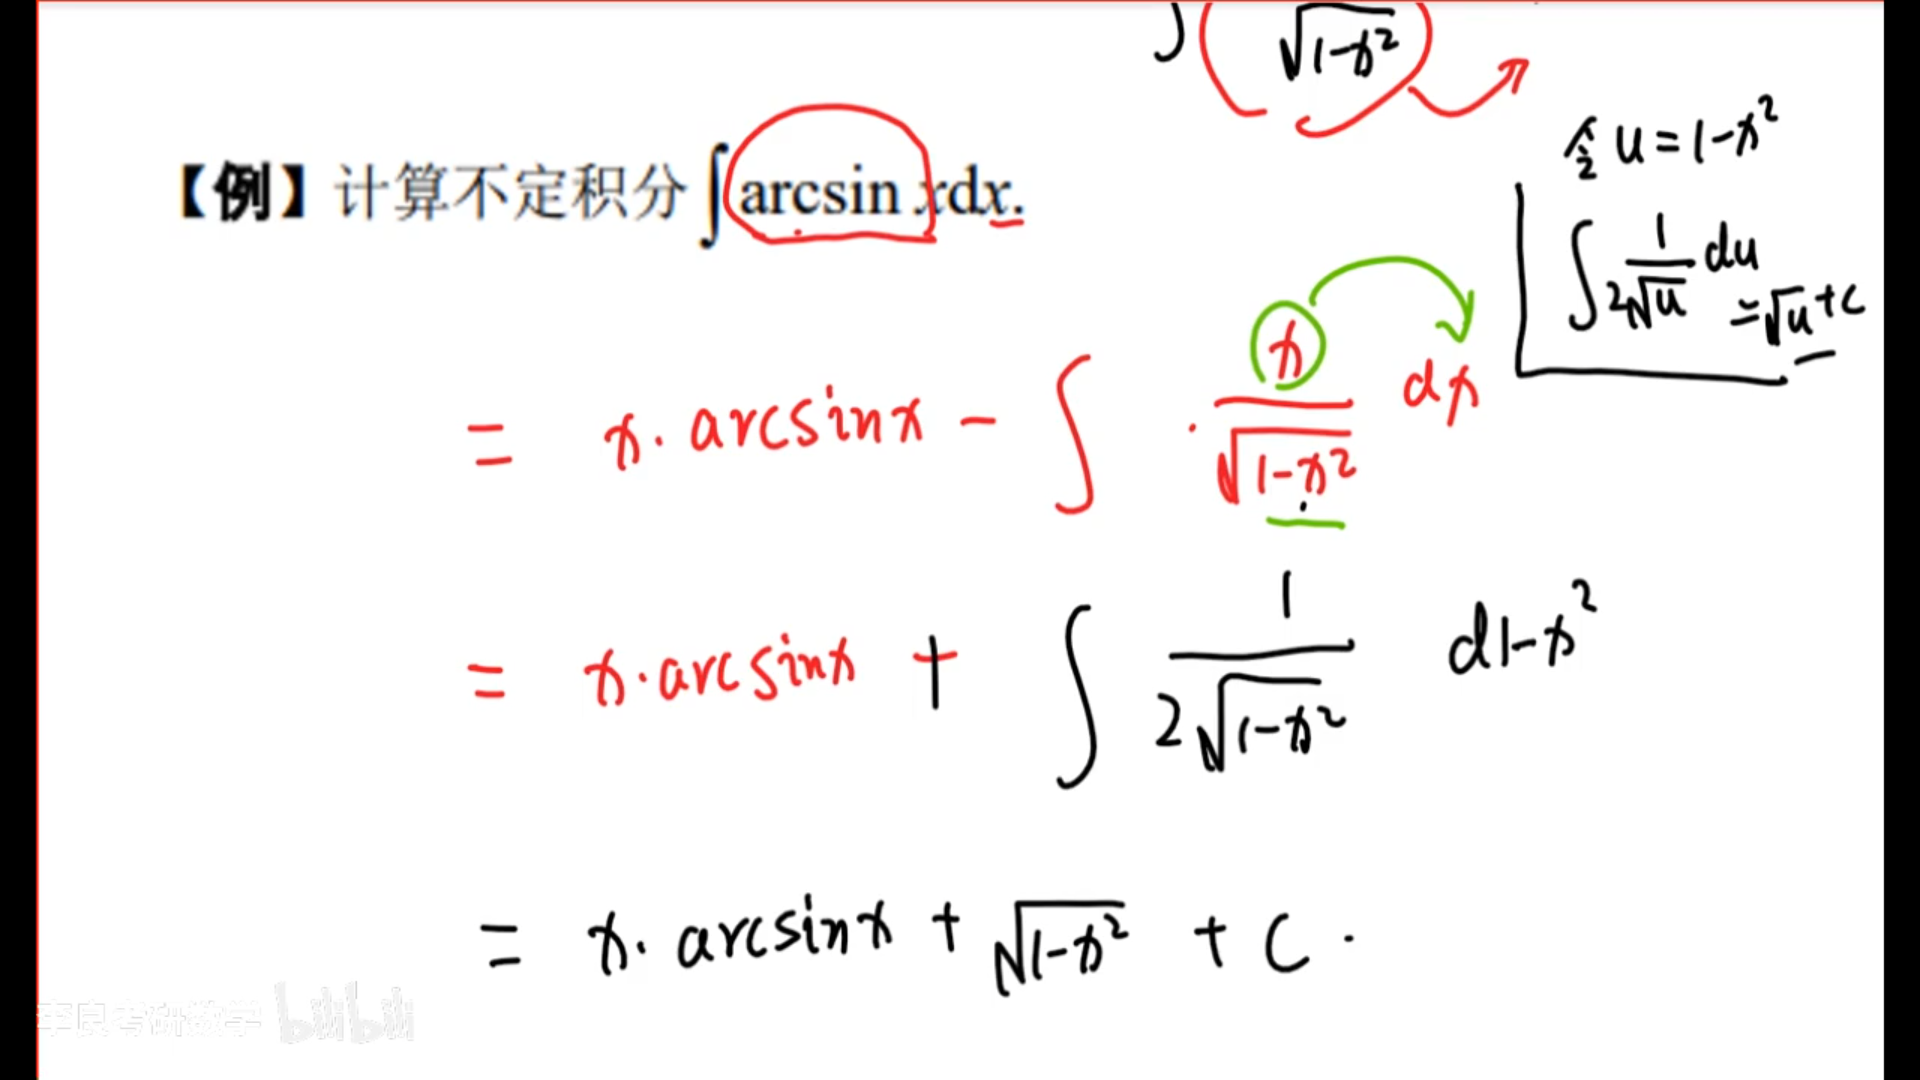 ∫ √(1-x²)
【例】计算不定积分 ∫ arcsin xdx.
令 u = 1-x²
∫ 1/(2√u) du = √u + C
= x · arcsinx - ∫ · x/√(1-x²) dx
= x · arcsinx + ∫ 1/(2√(1-x²)) d1-x²
= x · arcsinx + √(1-x²) + C .
李良考研数学 bilibili